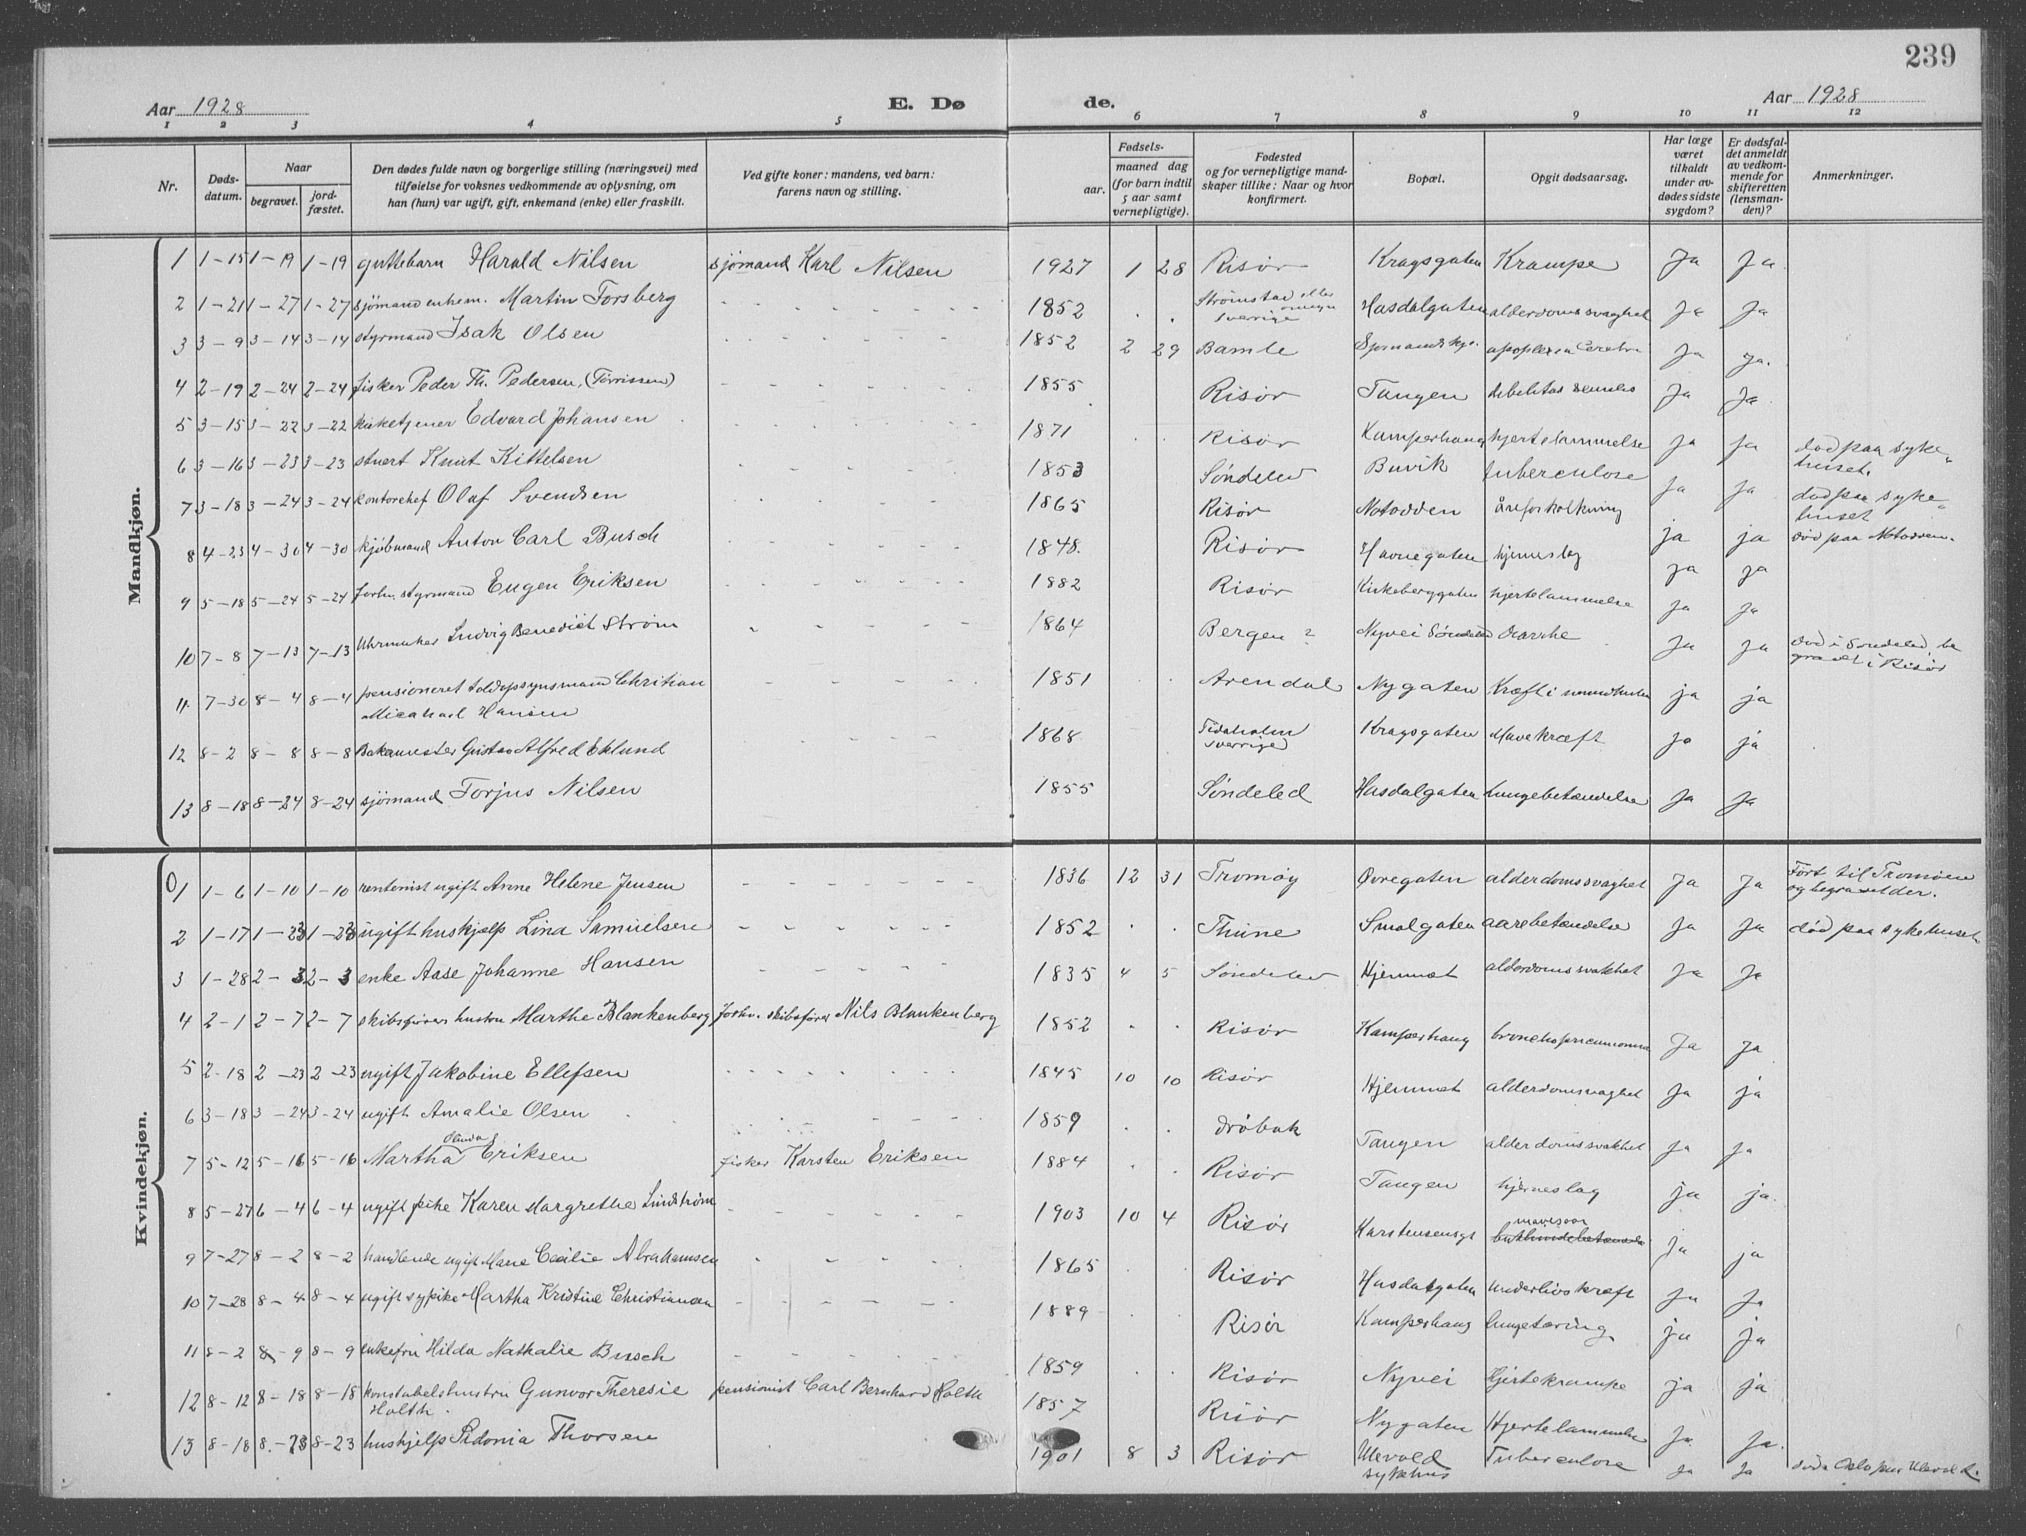 239
Aar 1928 E. Døde. Aar 1928
1 2 3 4 5 6 7 8 9 10 11 12
Nr. Døds-datum. Naar begravet. jord-fæstet. Den dødes fulde navn og borgerlige stilling (næringsvei) med tilføielse for voksnes vedkommende av oplysning, om han (hun) var ugift, gift, enkemand (enke) eller fraskilt. Ved gifte koner: mandens, ved barn: farens navn og stilling. Fødsels- aar. maaned dag (for barn indtil 5 aar samt vernepligtige). Fødested og for vernepligtige mandskaper tillike: Naar og hvor konfirmert. Bopæl. Opgit dødsaarsag. Har læge været tilkaldt under avdødes sidste sygdom? Er dødsfaldet anmeldt av vedkommende for skifteretten (lensmanden)? Anmerkninger.
Mandkjøn.
1 1-15 1-19 1-19 guttebarn Harald Nilsen sjømand Karl Nilsen 1927 1 28 Risør Kragsgaten Krampe Ja Ja
2 1-21 1-27 1-27 sjømand enkem. Martin Forsberg 1852 Strømstad eller omegn Sverrige Hasdalgaten alderdomssvaghet Ja Ja
3 3-9 3-14 3-14 styrmand Isak Olsen 1852 2 29 Bamle Sjømandskys. apoplexia Cerebri Ja Ja.
4 2-19 2-24 2-24 fisker Peder Th. Pedersen, (Tørrissen) 1855 Risør Tangen debelitas senelis Ja Ja
5 3-15 3-22 3-22 kirketjener Edvard Johansen 1871 Risør Kamperhaug hjertelammelse Ja Ja
6 3-16 3-23 3-23 stuert Knut Kittelsen 1853 Søndeled Buvik tuberculose Ja Ja død paa sykehuset.
7 3-18 3-24 3-24 kontorchef Olaf Svendsen 1865 Risør Notodden åreforkalkning ja ja død paa sykehuset død paa Notodden.
8 4-23 4-30 4-30 kjøbmand Anton Carl Busch 1848. Risør Havnegaten hjerneslag ja ja
9 5-18 5-24 5-24 forhv. styrmand Eugen Eriksen 1882 Risør Kirkeberggaten hjertelammelse Ja Ja
10 7-8 7-13 7-13 Uhrmaker Ludvig Benedict Strøm 1864 Bergen ? Nyvei Søndeled Ja Ja død i Søndeled begravet i Risør
11 7-30 8-4 8-4 pensioneret toldopsynsmand Christian Micahael Hansen 1851 Arendal Nygaten Kræft i ja ja
12 8-2 8-8 8-8 Bakermester Gustav Alfred Eklund 1868 Tidaholm Sverrige Kragsgaten Mavekræft ja ja
13 8-18 8-24 8-24 sjømand Torjus Nilsen 1855 Søndeled Hasdalgaten Lungebetændelse Ja Ja
Kvindekjøn.
1 1-6 1-10 1-10 rentenist ugift Anne Helene Jensen 1836 12 31 Tromøy Øvregaten alderdomssvaghet Ja Ja Ført til Tromøen og begravet der.
2 1-17 1-23 1-23 ugift huskjælp Lina Samuelsen 1852 Smalgaten aarebetændelse Ja Ja død paa sykehuset
3 1-28 2-3 2-3 enke Aase Johanne Hansen 1835 4 5 Søndeled Hjemmet alderdomssvakhet Ja Ja
4 2-1 2-7 2-7 skibsførers hustru Marthe Blankenberg forhv. skibsfører Nils Blankenberg 1852 Risør Kamperhaug bronchopneumonia Ja Ja
5 2-18 2-23 2-23 ugift Jakobine Ellefsen 1845 10 10 Risør Hjemmet alderdomsvaghet Ja ja
6 3-18 3-24 3-24 ugift Amalie Olsen 1859 Drøbak Tangen alderdomssvakhet Ja Ja
7 5-12 5-16 5-16 Martha Olinda Eriksen fisker Karsten Eriksen 1884 Risør Tangen hjerneslag ja ja.
8 5-27 6-4 6-4 ugift pike Karen Margrethe Lindstrøm 1903 10 4 Risør Karstensensgt mavesaar Ja ja
9 7-27 8-2 8-2 handlende ugift Marie Cecilie Abrahamsen 1865 Risør Hasdalgaten Underlivskræft Ja Ja
10 7-28 8-4 8-4 ugift sypike Martha Kristine Christiansen 1889 Risør Kamperhaug lungetæring ja ja
11 8-2 8-9 8-9 enkefru Hilda Nathalie Busch 1859 Risør Nyvei Hjertekrampe ja ja
12 8-12 8-18 8-18 konstabelshustru Gunvor Theresie Holth. pensionist Carl Bernhard Holth 1857 Risør Nygaten Hjertelammelse Ja Ja.
13 8-18 8-23 8-23 hushjelp Sidonia Thorsen 1901 8 3 Risør Ulevold sykehus Tuberculose Ja Ja død i Oslo paa Ulevold s.